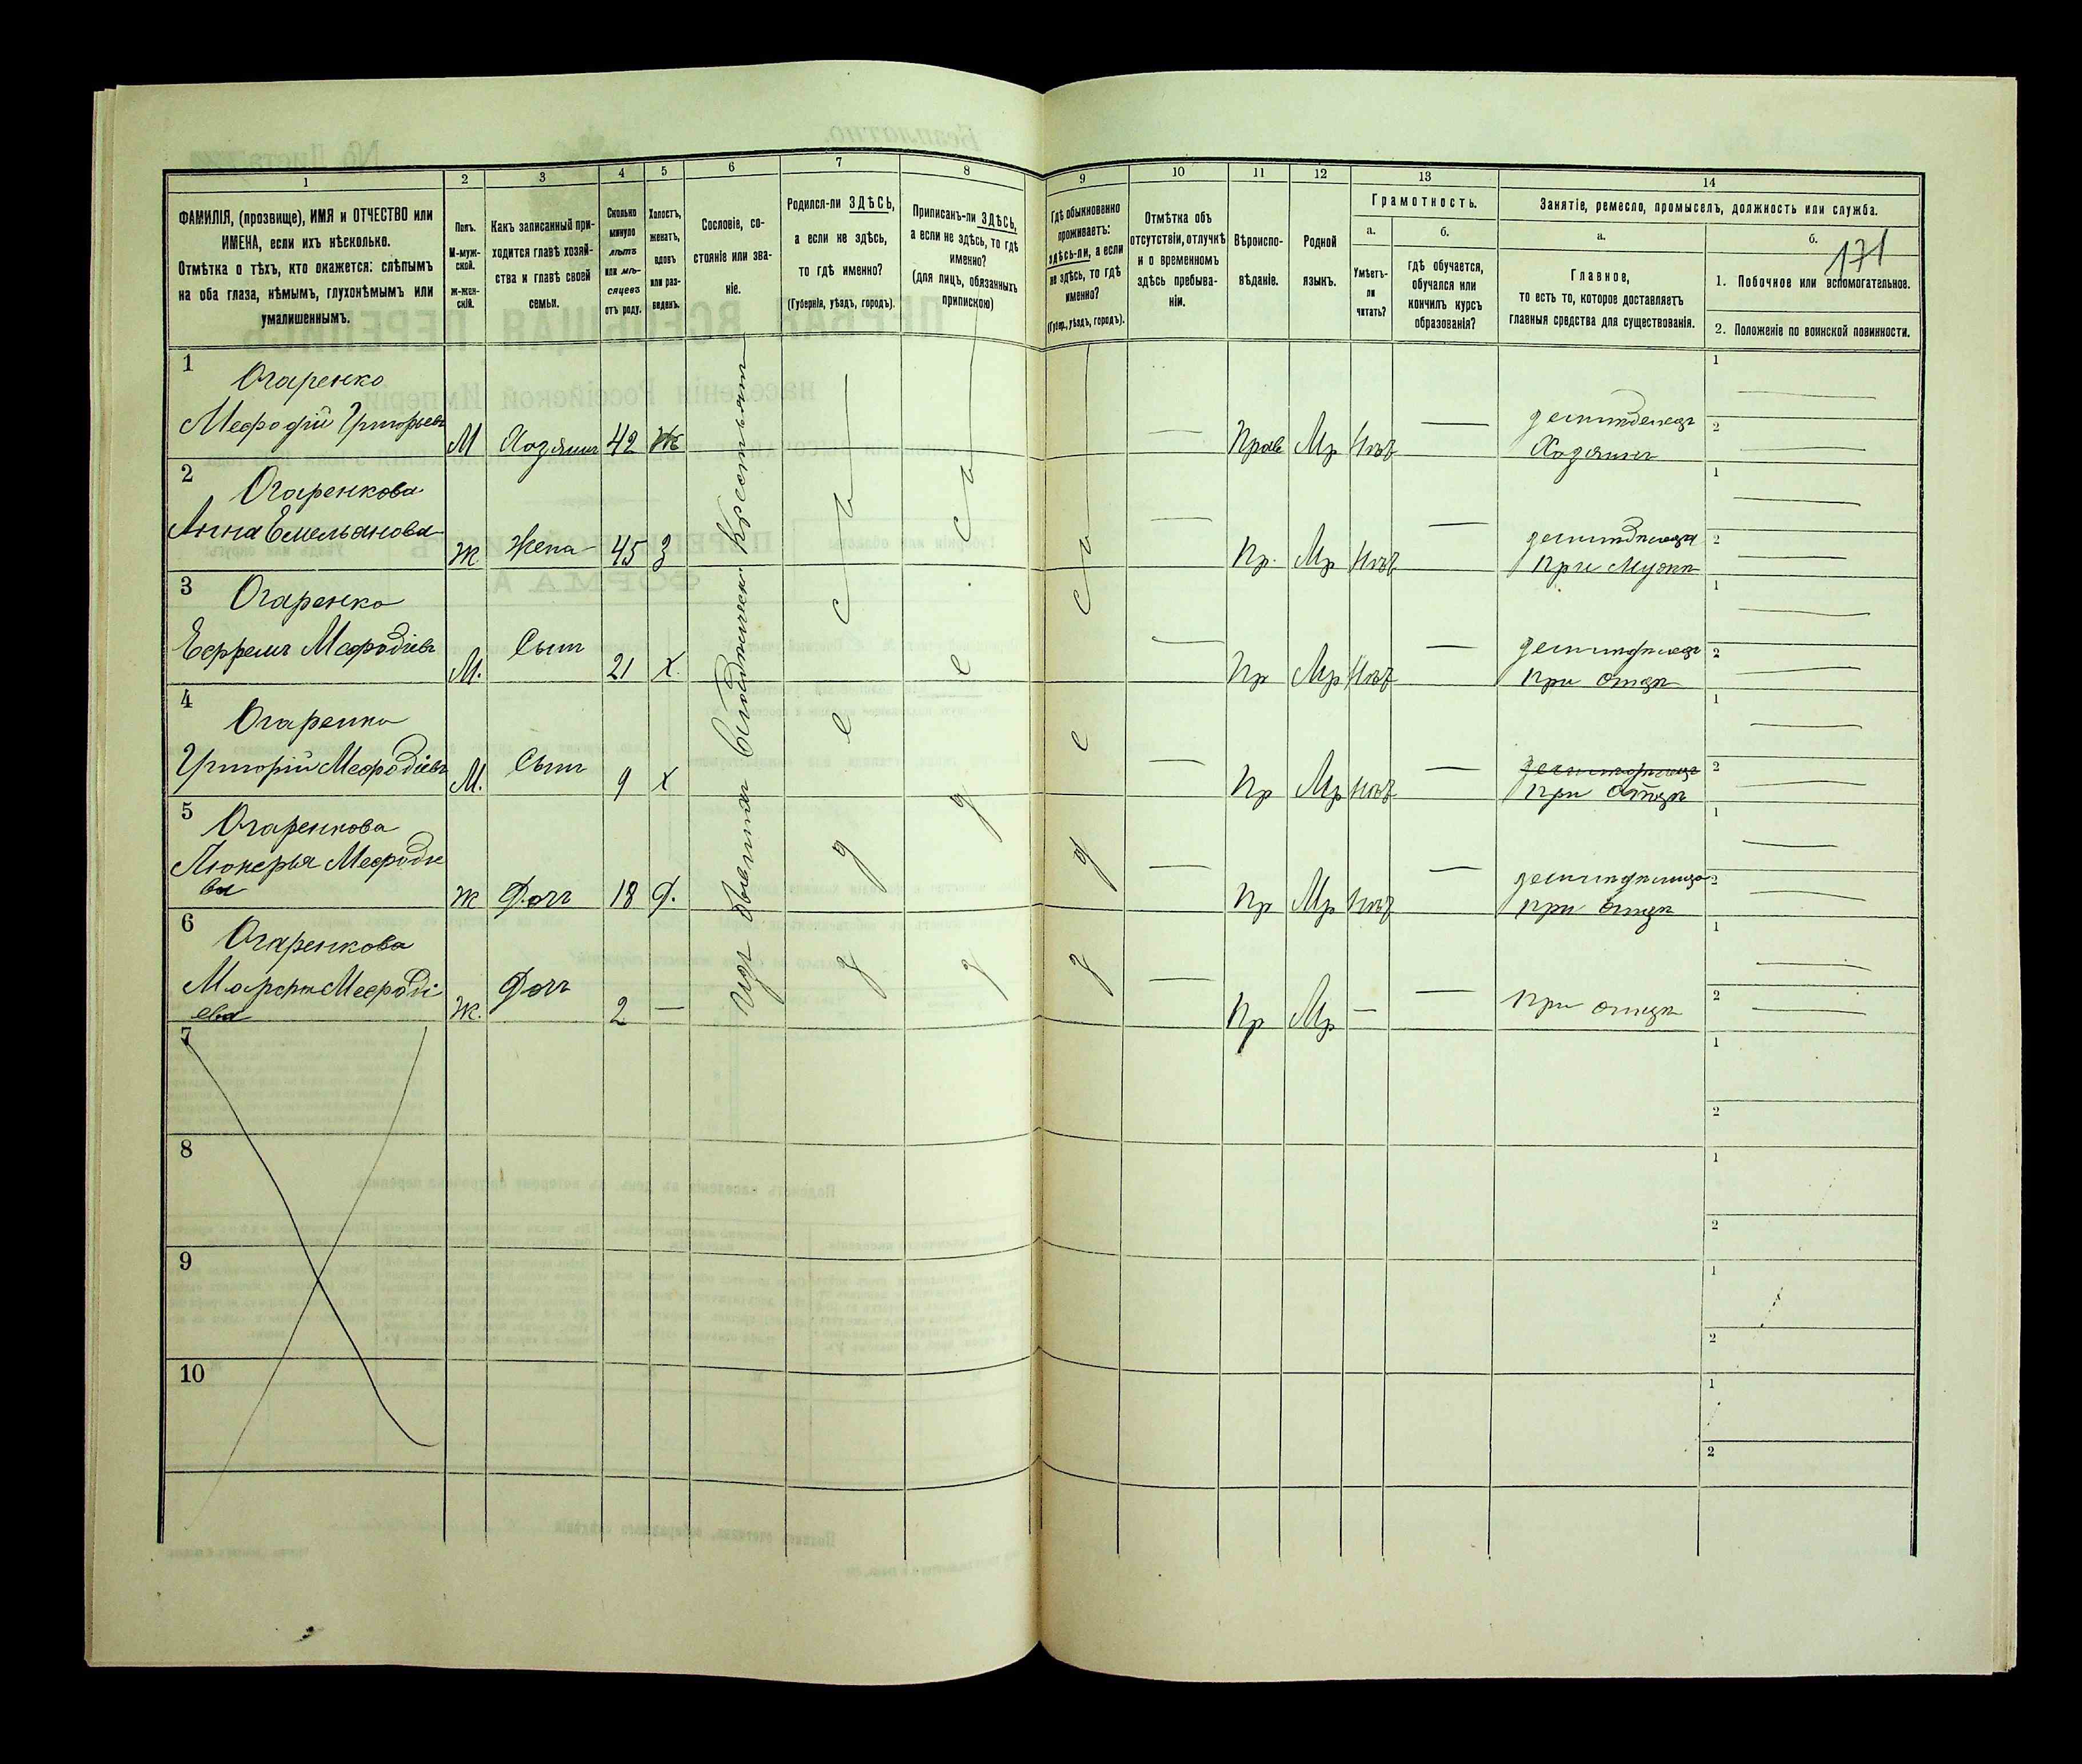 1 2 3 4 5 6 7 8 9 10 11 12 13 14
ФАМИЛІЯ, (прозвище), ИМЯ и ОТЧЕСТВО или
ИМЕНА, если ихъ нѣсколько.
Отмѣтка о тѣхъ, кто окажется: слѣпымъ
на оба глаза, нѣмымъ, глухонѣмымъ или
умалишеннымъ.
Полъ.
М-муж-
ской.
Ж-жен-
скій.
Какъ записанный при-
ходится главѣ хозяй-
ства и главѣ своей
семьи.
Сколько
минуло
лѣтъ
или мѣ-
сяцевъ
отъ роду.
Холостъ,
женатъ,
вдовъ
или раз-
веденъ.
Сословіе, со-
стояніе или зва-
ніе.
Родился-ли ЗДѢСЬ,
а если не здѣсь,
то гдѣ именно?
(Губернія, уѣздъ, городъ).
Приписанъ-ли ЗДѢСЬ,
а если не здѣсь, то гдѣ
именно?
(для лицъ, обязанныхъ
припискою)
Гдѣ обыкновенно
проживаетъ:
здѣсь-ли, а если
не здѣсь, то гдѣ
именно?
(Губер., уѣздъ, городъ).
Отмѣтка объ
отсутствіи, отлучкѣ
и о временномъ
здѣсь пребыва-
ніи.
Вѣроиспо-
вѣданіе.
Родной
языкъ.
Грамотность.
а.
Умѣетъ-
ли
читать?
б.
гдѣ обучается,
обучался или
кончилъ курсъ
образованія?
Занятіе, ремесло, промыселъ, должность или служба.
а.
Главное,
то есть то, которое доставляетъ
главныя средства для существованія.
б.
171
1. Побочное или вспомогательное.
2. Положеніе по воинской повинности.
1
Огаренко
Мефодій Григорьевъ М Хозяинъ 42 Ж Прав Мр Нѣтъ
Хозяинъ
2
Огаренкова
Анна Емельянова Ж. Жена 45 З Пр. Мр Нѣтъ
При Мужѣ
3
Огаренко
Ефремъ Мефодіевъ М. Сынъ 21 Х. Пр Мр Нѣтъ
При отцѣ
4
Огаренко
Григорій Мефодіевъ М. Сынъ 9 Х Пр Мр Нѣтъ
При отцѣ
5
Огаренкова
Мефодіе
ва Ж Дочь 18 Д. Пр Мр Нѣтъ
При отцѣ
6
Огаренкова
Марфа Мефоді
ева Ж. Дочь 2 Пр Мр
При отцѣ
Изъ бывшихъ Крестьянъ
здѣсь
здѣсь
здѣсь
7
8
9
10
1
2
1
2
1
2
1
2
1
2
1
2
1
2
1
2
1
2
1
2